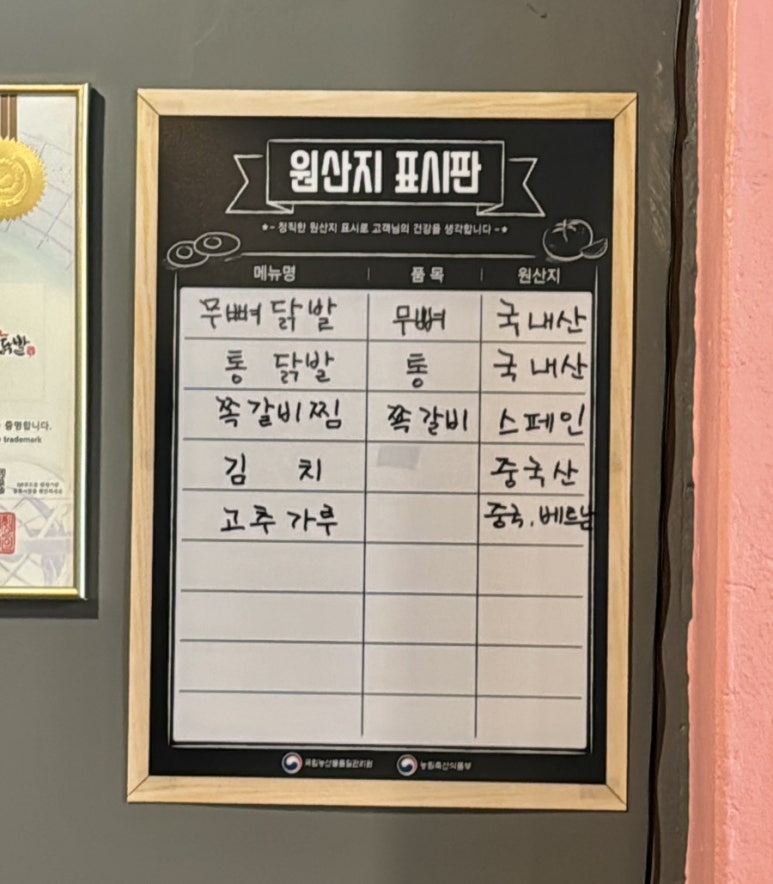 원산지 표시판
★- 정직한 원산지 표시로 고객님의 건강을 생각합니다 -★
메뉴명 품목 원산지
무뼈 닭발 무뼈 국내산
통 닭발 통 국내산
쪽갈비찜 쪽갈비 스페인
김 치 중국산
고추가루 중국.베트남
국립농산물품질관리원 농림축산식품부
닭발
증명합니다.
trademark